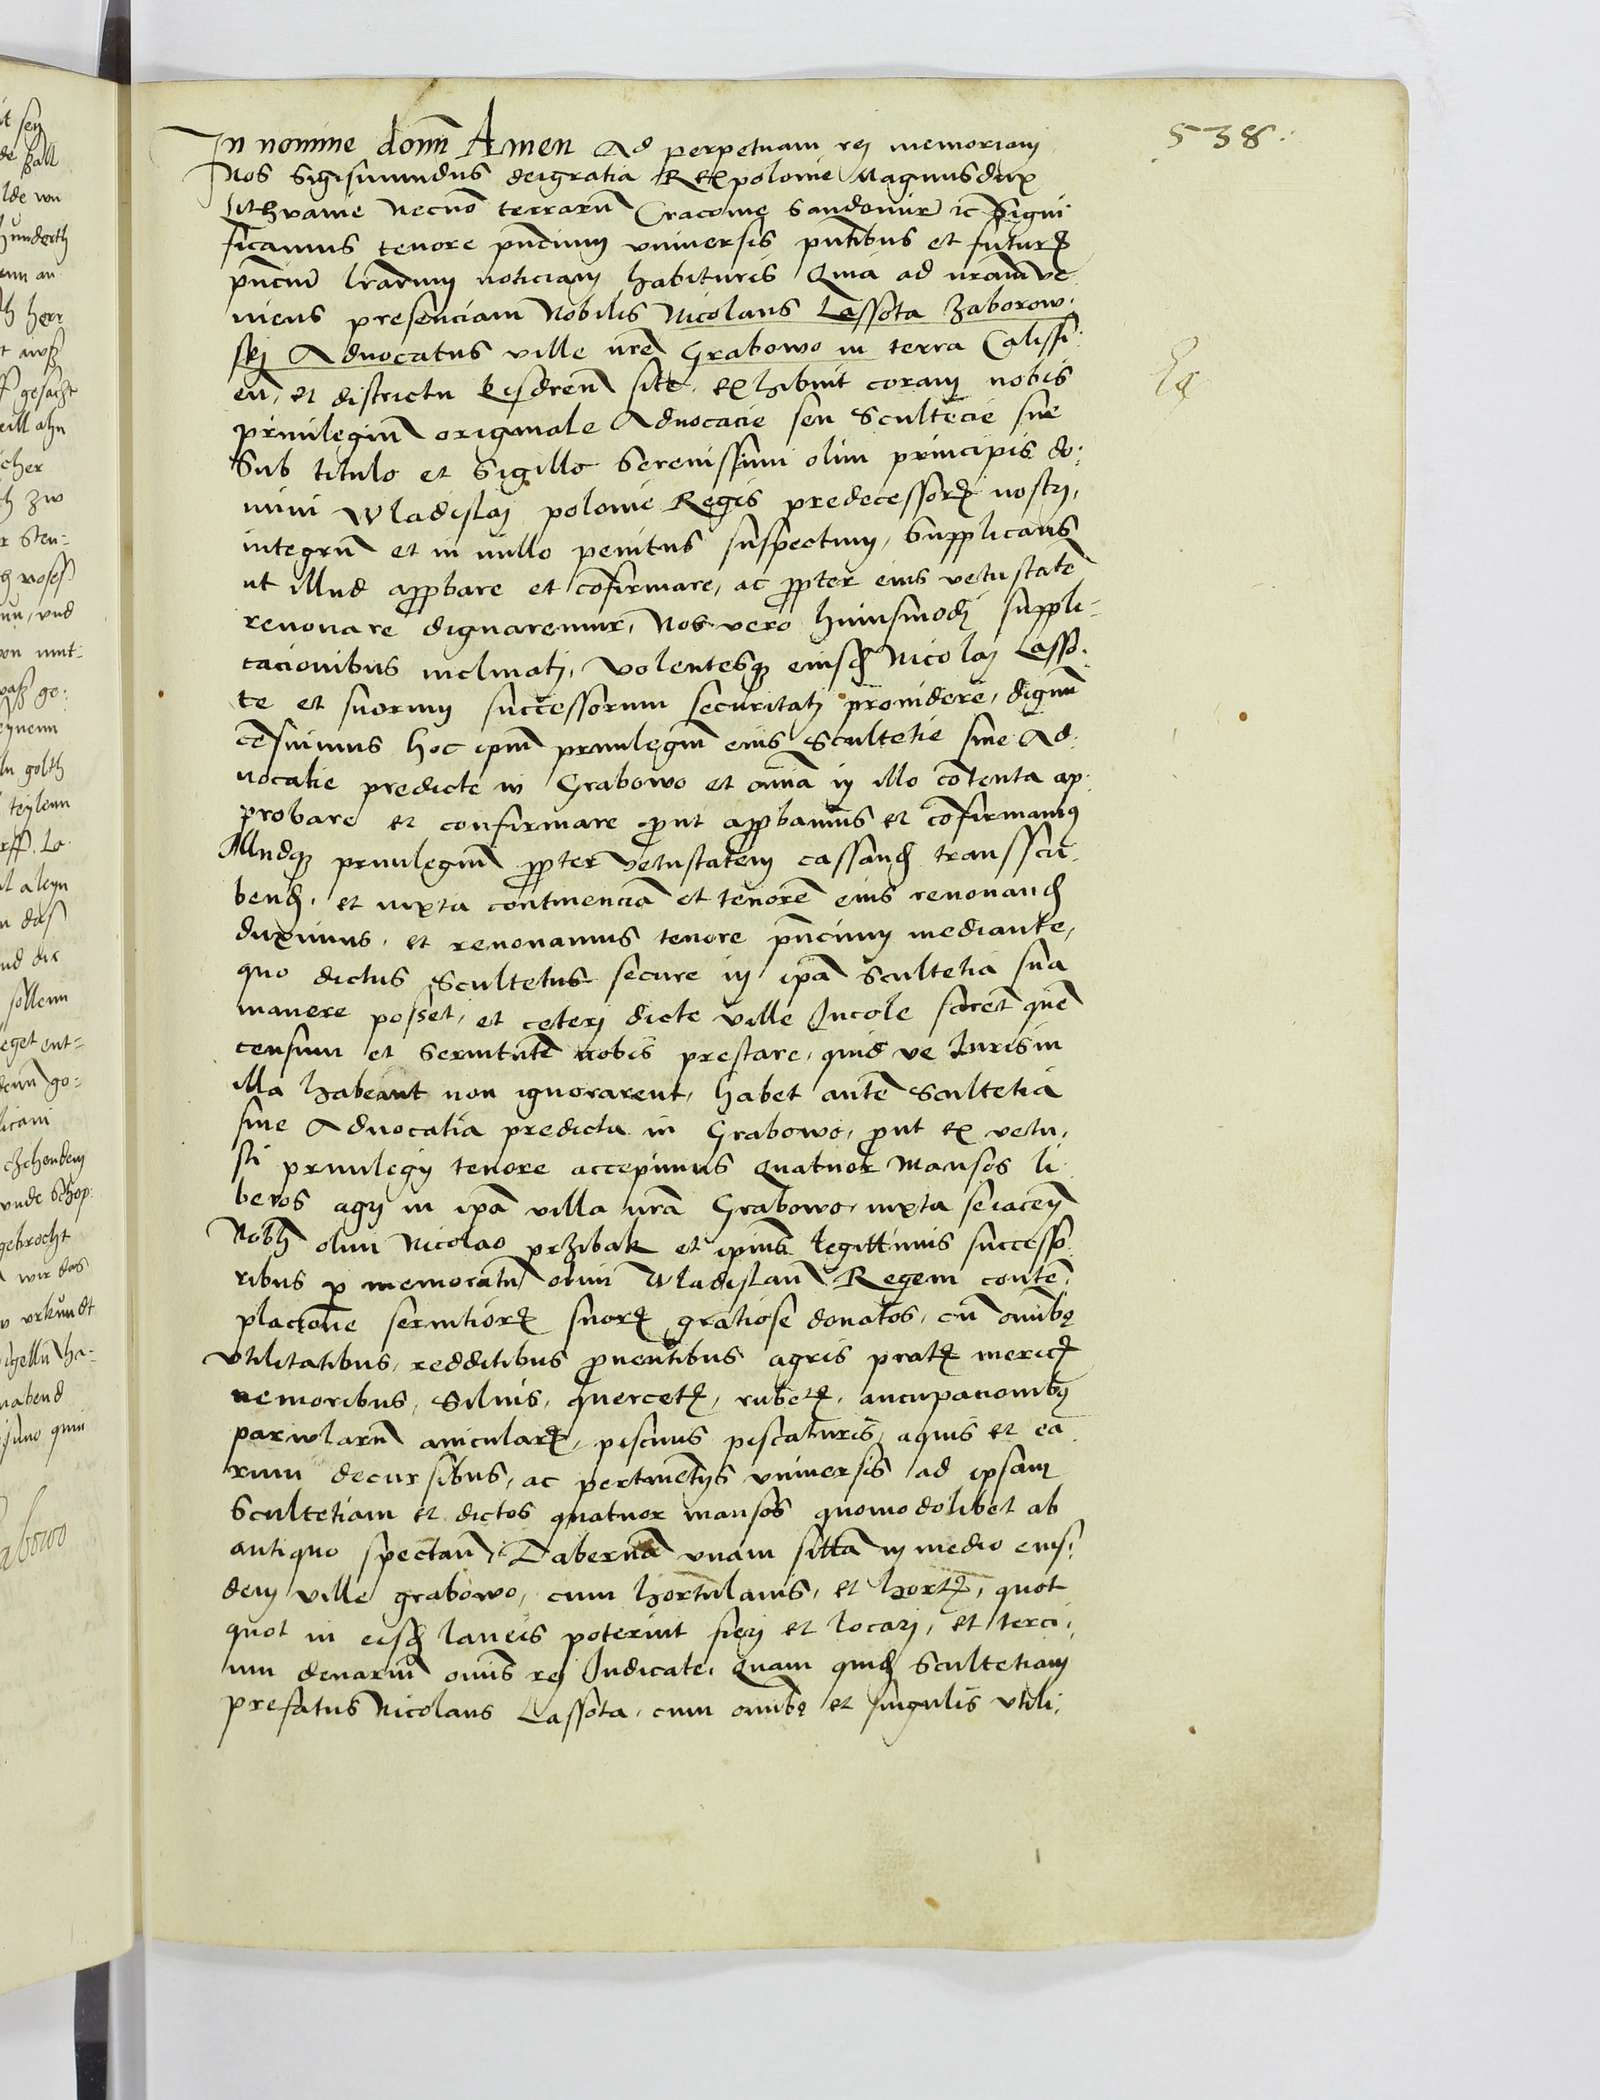 538.
In nomine domī Amen Ad perpetuam rej memoriam
Nos Sigismundus dei gratia Rex polonie Magnus dux
Lithvanie Necnō terrarū Cracovie Sandomir̄ ic Signi
ficamus tenore pn̄cium vniversis pn̄tibus et futurꝭ
pn̄ciū lr̄arum noticiam habituris Quia ad nr̄am ve
niens presenciam Nobilis Nicolaus Lassota Zaborow:
skj Advocatus ville nr̄e Grabowo in terra Calissi:
en̄, et districtu site, exhibuit coram nobis
privilegiū originale Advocacie seu Scultecie sue
Sub titulo et Sigillo Serenissimi olim principis do:
mini Wladislaj polonie Regis predecessorꝭ nostrj,
integrū et in nullo penitus suspectum, Supplicans
ut illud app̄bare et cōfirmare, ac pp̄ter eius vetustatē
renovare dignaremur, Nos vero huiusmodj suppli-
cacionibus inclinatj, Volentesqꝫ eiusdē Nicolaj Lasso:
te et suorum successorum securitatj providere, dignū
cēsuimus hoc ipm̄ privilegiū eius Scultetie sive Ad:
vocatie predicte in Grabowo et oīa in illo cōtenta ap:
probare et confirmare put app̄bamus et cōfirmamus
Illudqꝫ privilegiū pp̄ter vetustatem cassandū transscri:
bendū, et iuxta continenciā et tenorē eius renovandū
duximus, et renovamus tenore pn̄cium mediante,
quo dictus Scultetus secure in ipā Scultetia sua
manere posset, et ceterj dicte ville Incole scirēt quē
censum et Servitutē nobis prestare, quid ve Juris in
illa habeant non ignorarent, habet autē Scultetia
sive Advocatia predicta in Grabowo, put ex vetu:
sti privilegij tenore accepimus Quatuor Mansos li
beros agrj in ipā villa nr̄a Grabowo iuxta se iacen̄
Nobli olim Nicolao przibak et ipius legittimis successo:
ribus p memoratū olim Wladislaū Regem contē:
placione servitiorꝭ suorꝭ gratiose donatos, cū omībꝫ
vtilitatibus, redditibus pventibus agris pratꝭ mericꝭ
nemoribus, Silvis, quercetꝭ, rubetꝭ, aucupacionibꝫ
parvularū avicularꝭ, piscinis piscaturis, aquis et ea
rum decursibus, ac pertinētijs vniversis ad ipsam
Scultetiam et dictos quatuor mansos quomodolibet ab
antiquo spectan̄, Tabernā vnam sittā in medio eius:
dem ville grabowo, cum hortulanis, et hortꝭ, quot
quot in eisdē laneis poterint fierj et locarj, et terci:
um denariū omīs rej Judicate, Quam quidē Scultetiam
prefatus Nicolaus Lassota, cum omībꝫ et singulis vtili: